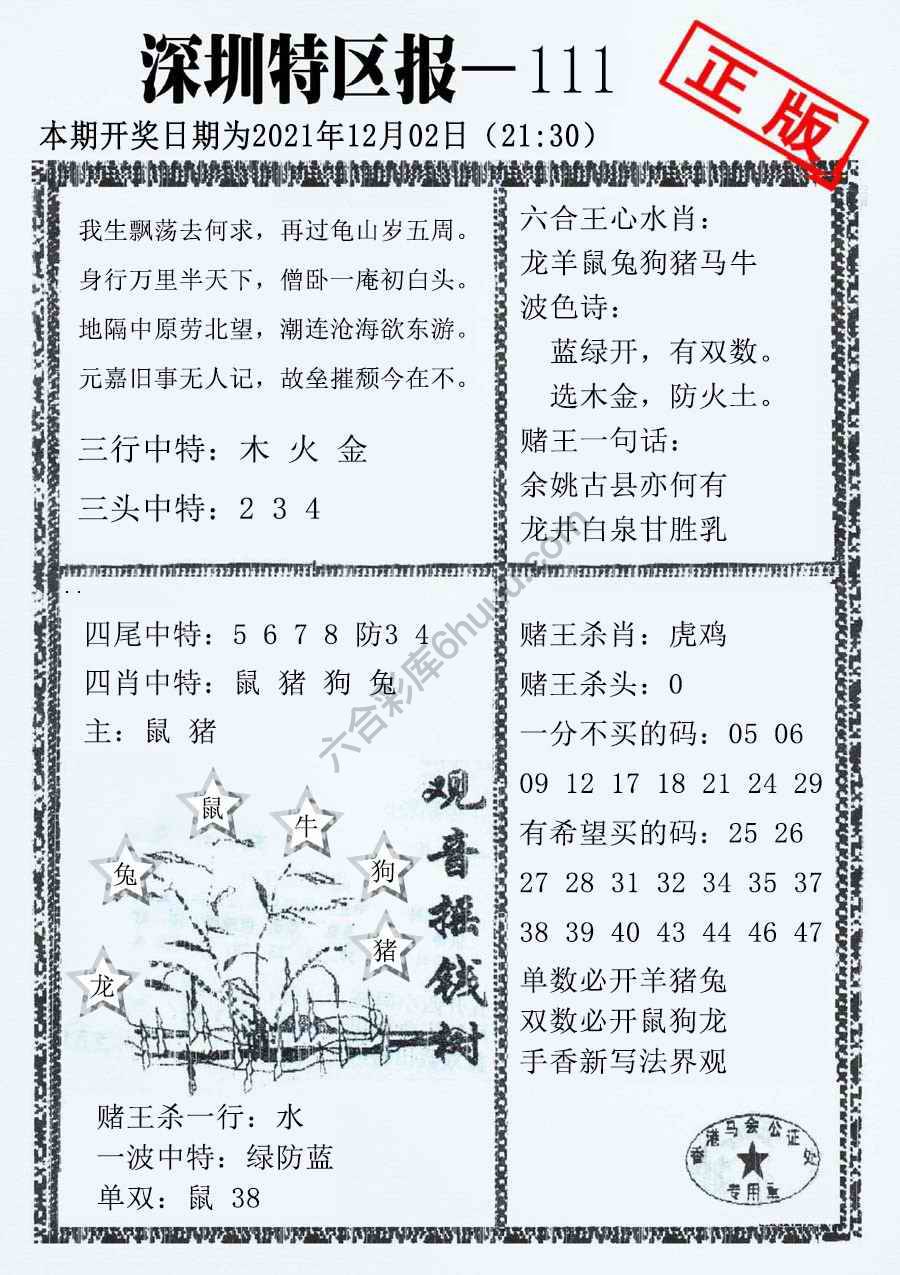 深圳特区报—111
正版
本期开奖日期为2021年12月02日（21:30）
我生飘荡去何求，再过龟山岁五周。
身行万里半天下，僧卧一庵初白头。
地隔中原劳北望，潮连沧海欲东游。
元嘉旧事无人记，故垒摧颓今在不。
三行中特：木 火 金
三头中特：2 3 4
六合王心水肖：
龙羊鼠兔狗猪马牛
波色诗：
蓝绿开，有双数。
选木金，防火土。
赌王一句话：
余姚古县亦何有
龙井白泉甘胜乳
四尾中特：5 6 7 8 防3 4
四肖中特：鼠 猪 狗 兔
主：鼠 猪
鼠
牛
兔
狗
猪
龙
观音摇钱树
赌王杀一行：水
一波中特：绿防蓝
单双：鼠 38
赌王杀肖：虎鸡
赌王杀头：0
一分不买的码：05 06
09 12 17 18 21 24 29
有希望买的码：25 26
27 28 31 32 34 35 37
38 39 40 43 44 46 47
单数必开羊猪兔
双数必开鼠狗龙
手香新写法界观
香港马会公证处
专用章
六合彩库6huu.com